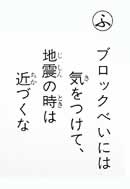 ふ
ブロックべいには
気をつけて、
地震の時は
近づくな